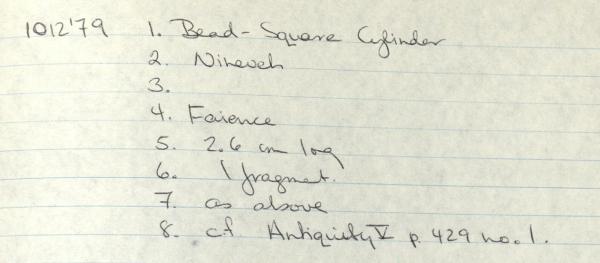 1012'79 1. Bead-Square Cylinder
2. Nineveh
3.
4. Faience
5. 2.6 cm log
6. 1 fragmet.
7. as above
8. cf Antiquity V p. 429 no. 1.